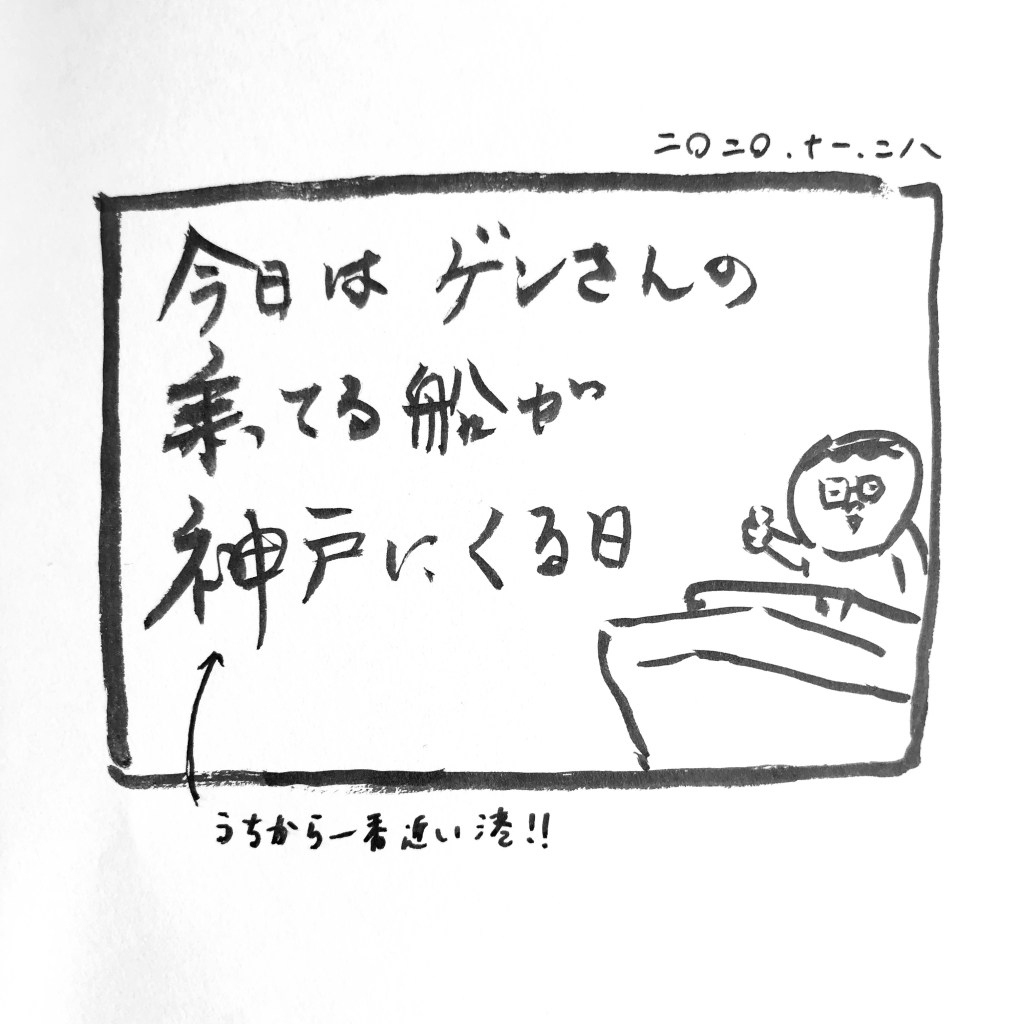 二〇二〇.十一.二八
今日は ゲンさんの
乗ってる船が
神戸にくる日
うちから一番近い港!!